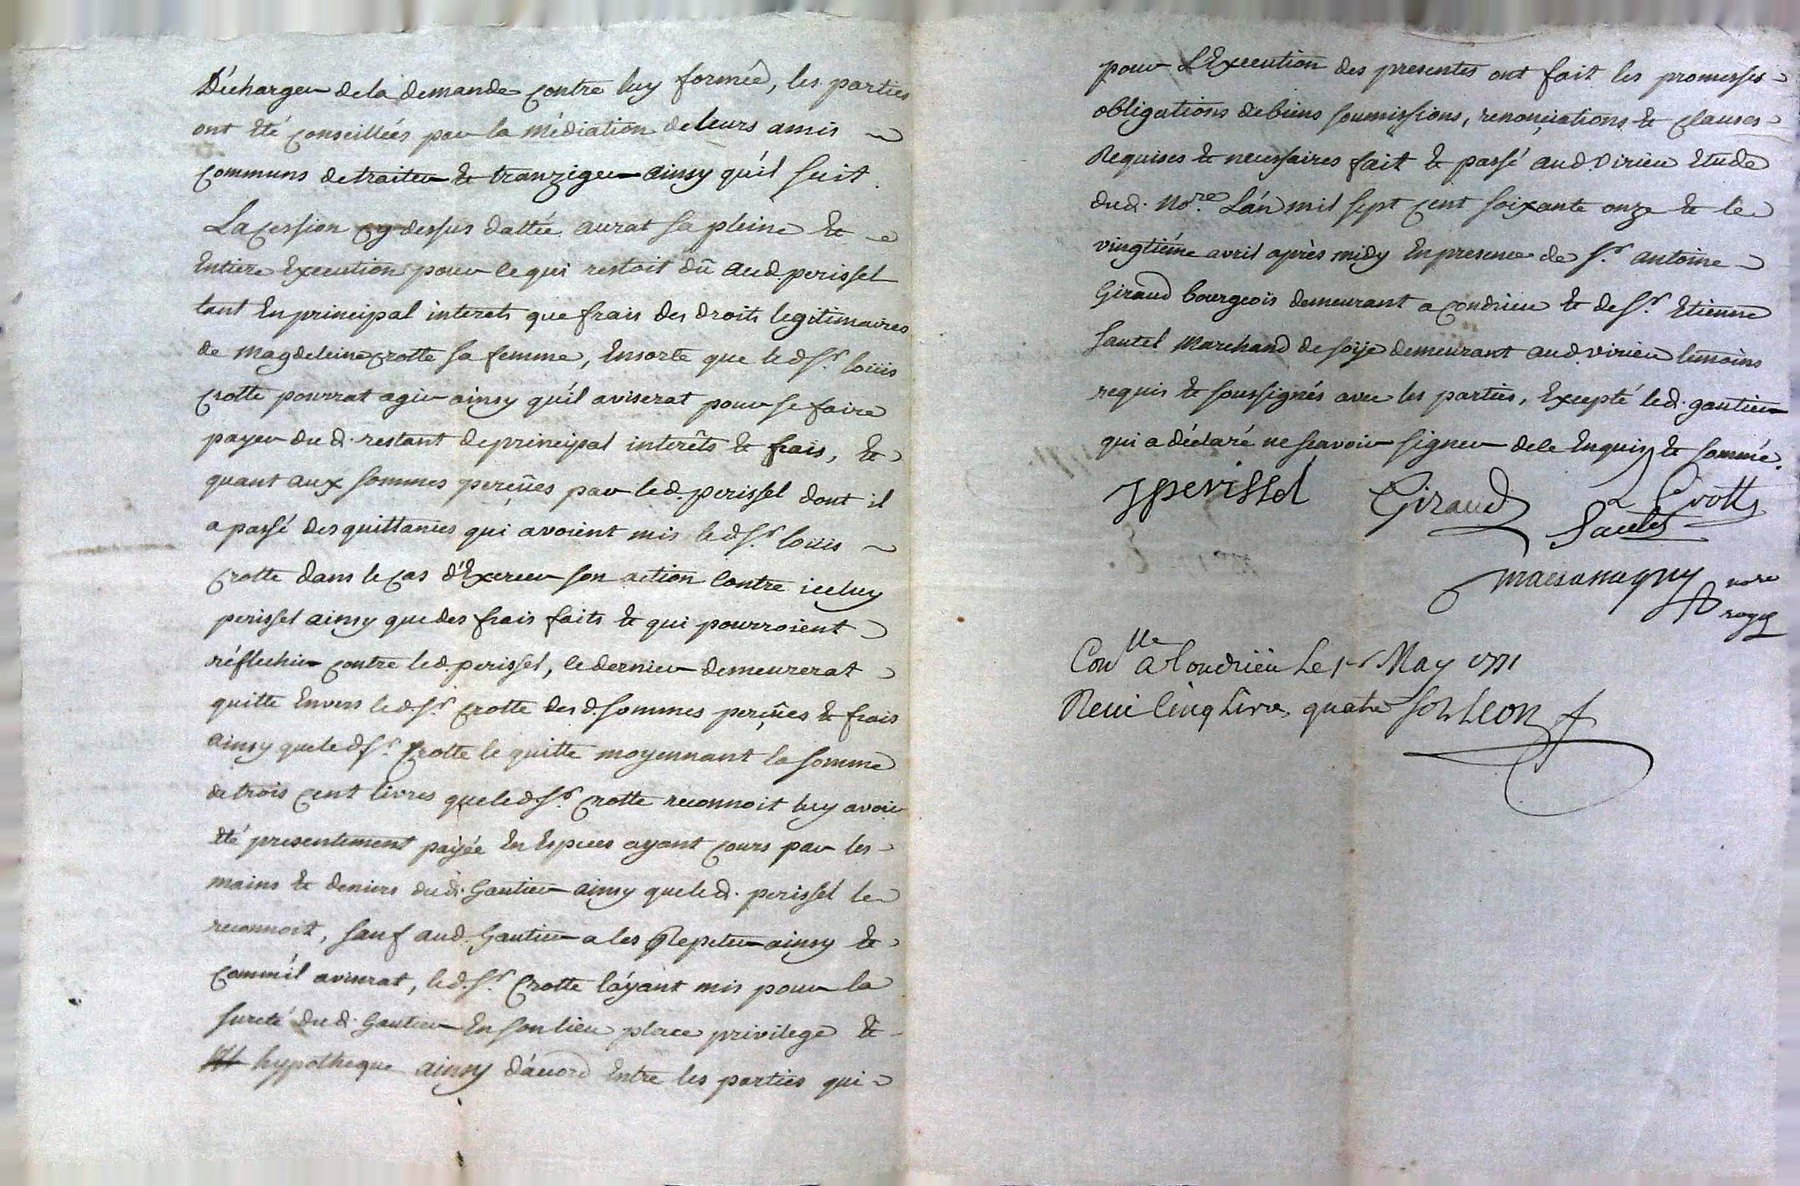 Décharger de la demande contre luy formée, les parties
ont été conseillées par la médiation de leurs amis
communs de traiter & tranziger ainsy qu'il suit.
La cession cy dessus dattée aurat sa pleine &
Entiere Execution pour ce qui restoit dû aud. perissel
tant En principal interets que frais des droits legitimaires
de magdeleine crotte sa femme, Ensorte que led. Sr. louis
crotte pourrat agir ainsy qu'il aviserat pour se faire
payer dud. restant de principal interêts & frais, &
quant aux sommes perçües par led. perissel dont il
a passé des quittances qui avoient mis led. Sr. louis
crotte dans le cas d'Exercer son action contre iceluy
perissel ainsy que des frais faits & qui pourroient
réflechir contre led. perissel, le dernier demeurerat
quitte Envers led. Sr. crotte desd. sommes perçües & frais
ainsy que led. Sr. Crotte le quitte moyennant la somme
de trois cent livres que led. Sr. Crotte reconnoit luy avoir
été presentement payée En Espèces ayant cours par les
mains & deniers dud. Gautier ainsy que led. perissel le
reconnoit, sauf aud. Gautier a les Repeter ainsy &
comme il aviserat, led. Sr. Crotte l'ayant mis pour la
sureté dud. Gautier En son lieu place privilege &
hypotheque ainsy d'accord Entre les parties qui
pour L'Execution des presentes ont fait les promesses
obligations de biens soumissions, renonciations & clauses
Requises & necessaires fait & passé aud. Virieu Etude
dud. Nore. L'an mil sept cent soixante onze & le
vingtième avril après midy En presence de Sr. antoine
Giraud bourgeois demeurant a Condrieu & de Sr. Etienne
Sautel Marchand de soye demeurant aud. virieu temoins
requis & soussignés avec les parties, Excepté led. gautier
qui a déclaré ne scavoir signer de ce Enquis & sommé.
Jperissel Giraud Crotte
Sautel
nore
royal
Conlle a Condrieu Le 1er May 1771
Receu Cinq Livres quatre sols Leon